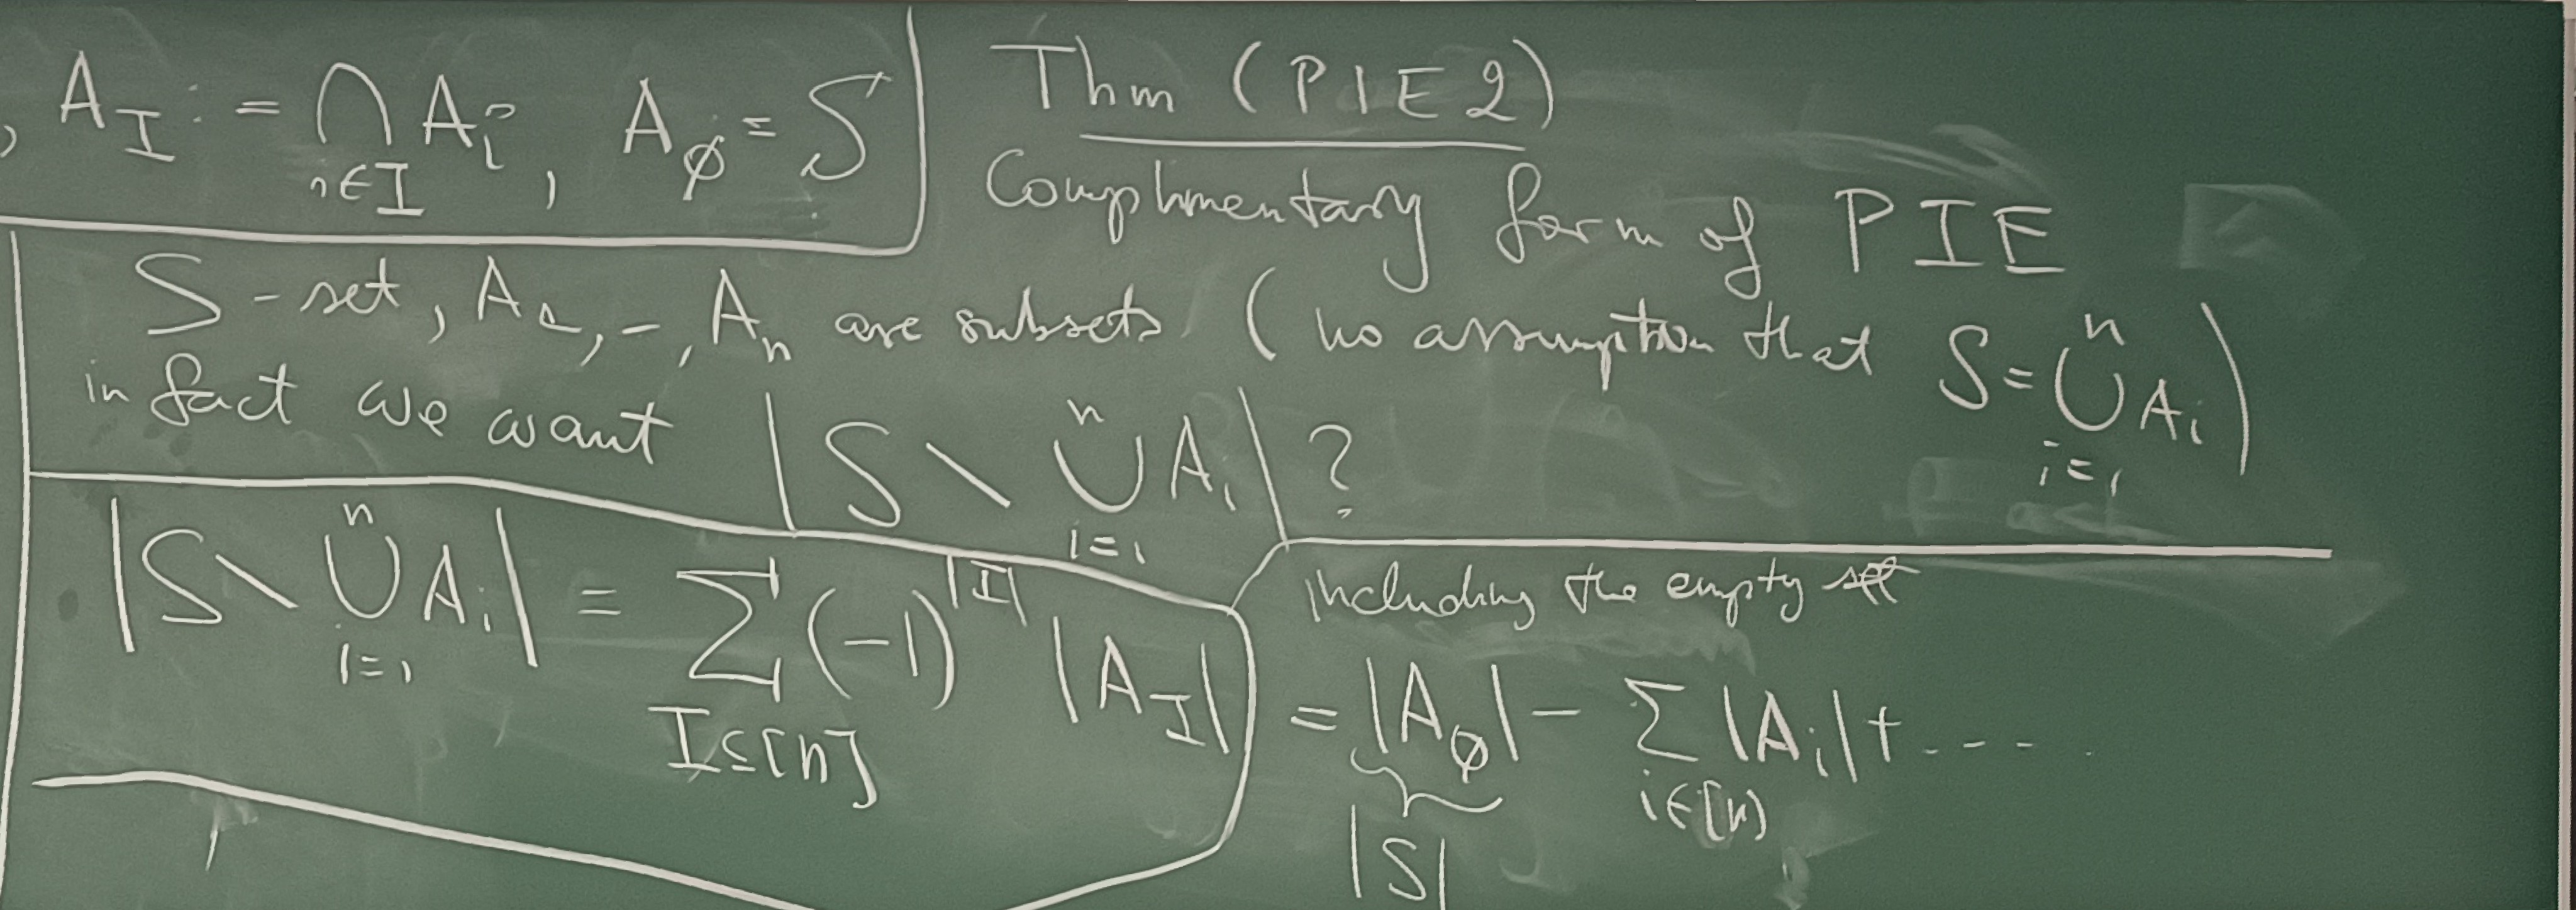 , A_I := ⋂_{i∈I} A_i , A_∅ = S
Thm (PIE 2)
Complimentary form of PIE
S - set, A_1, -, A_n are subsets ( no assumption that S = ⋃_{i=1}^{n} A_i )
in fact we want | S \ ⋃_{i=1}^{n} A_i | ?
| S \ ⋃_{i=1}^{n} A_i | = ∑_{I⊆[n]} (-1)^{|I|} |A_I|
including the empty set
= |A_∅| - ∑_{i∈[n]} |A_i| + - - - -
|S|